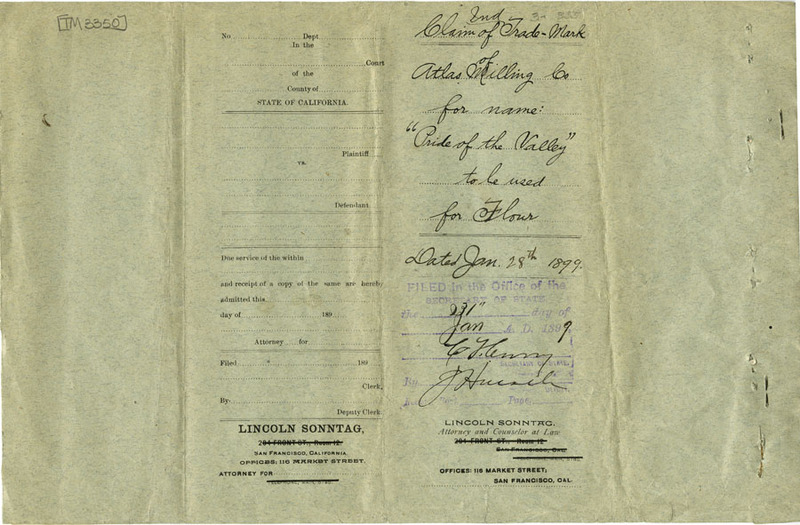 TM 3350
No Dept
In the
Court
of the
County of
STATE OF CALIFORNIA.
Plaintiff
vs.
Defendant
Due service of the within
and receipt of a copy of the same are hereby
admitted this
day of 189
Attorney for
Filed 189
Clerk,
By
Deputy Clerk.
LINCOLN SONNTAG,
204 FRONT ST., Room 12.
SAN FRANCISCO, CALIFORNIA.
OFFICES: 116 MARKET STREET.
ATTORNEY FOR
2nd
Claim of Trade-Mark
of
Atlas Milling Co
for name:
"Pride of the Valley"
to be used
for Flour
Dated Jan. 28th 1899.
FILED in the Office of the
SECRETARY OF STATE
the day of
Jan A. D. 1899
By
LINCOLN SONNTAG.
Attorney and Counselor at Law
204 FRONT ST., Room 12
SAN FRANCISCO, CAL.
OFFICES: 116 MARKET STREET;
SAN FRANCISCO, CAL.